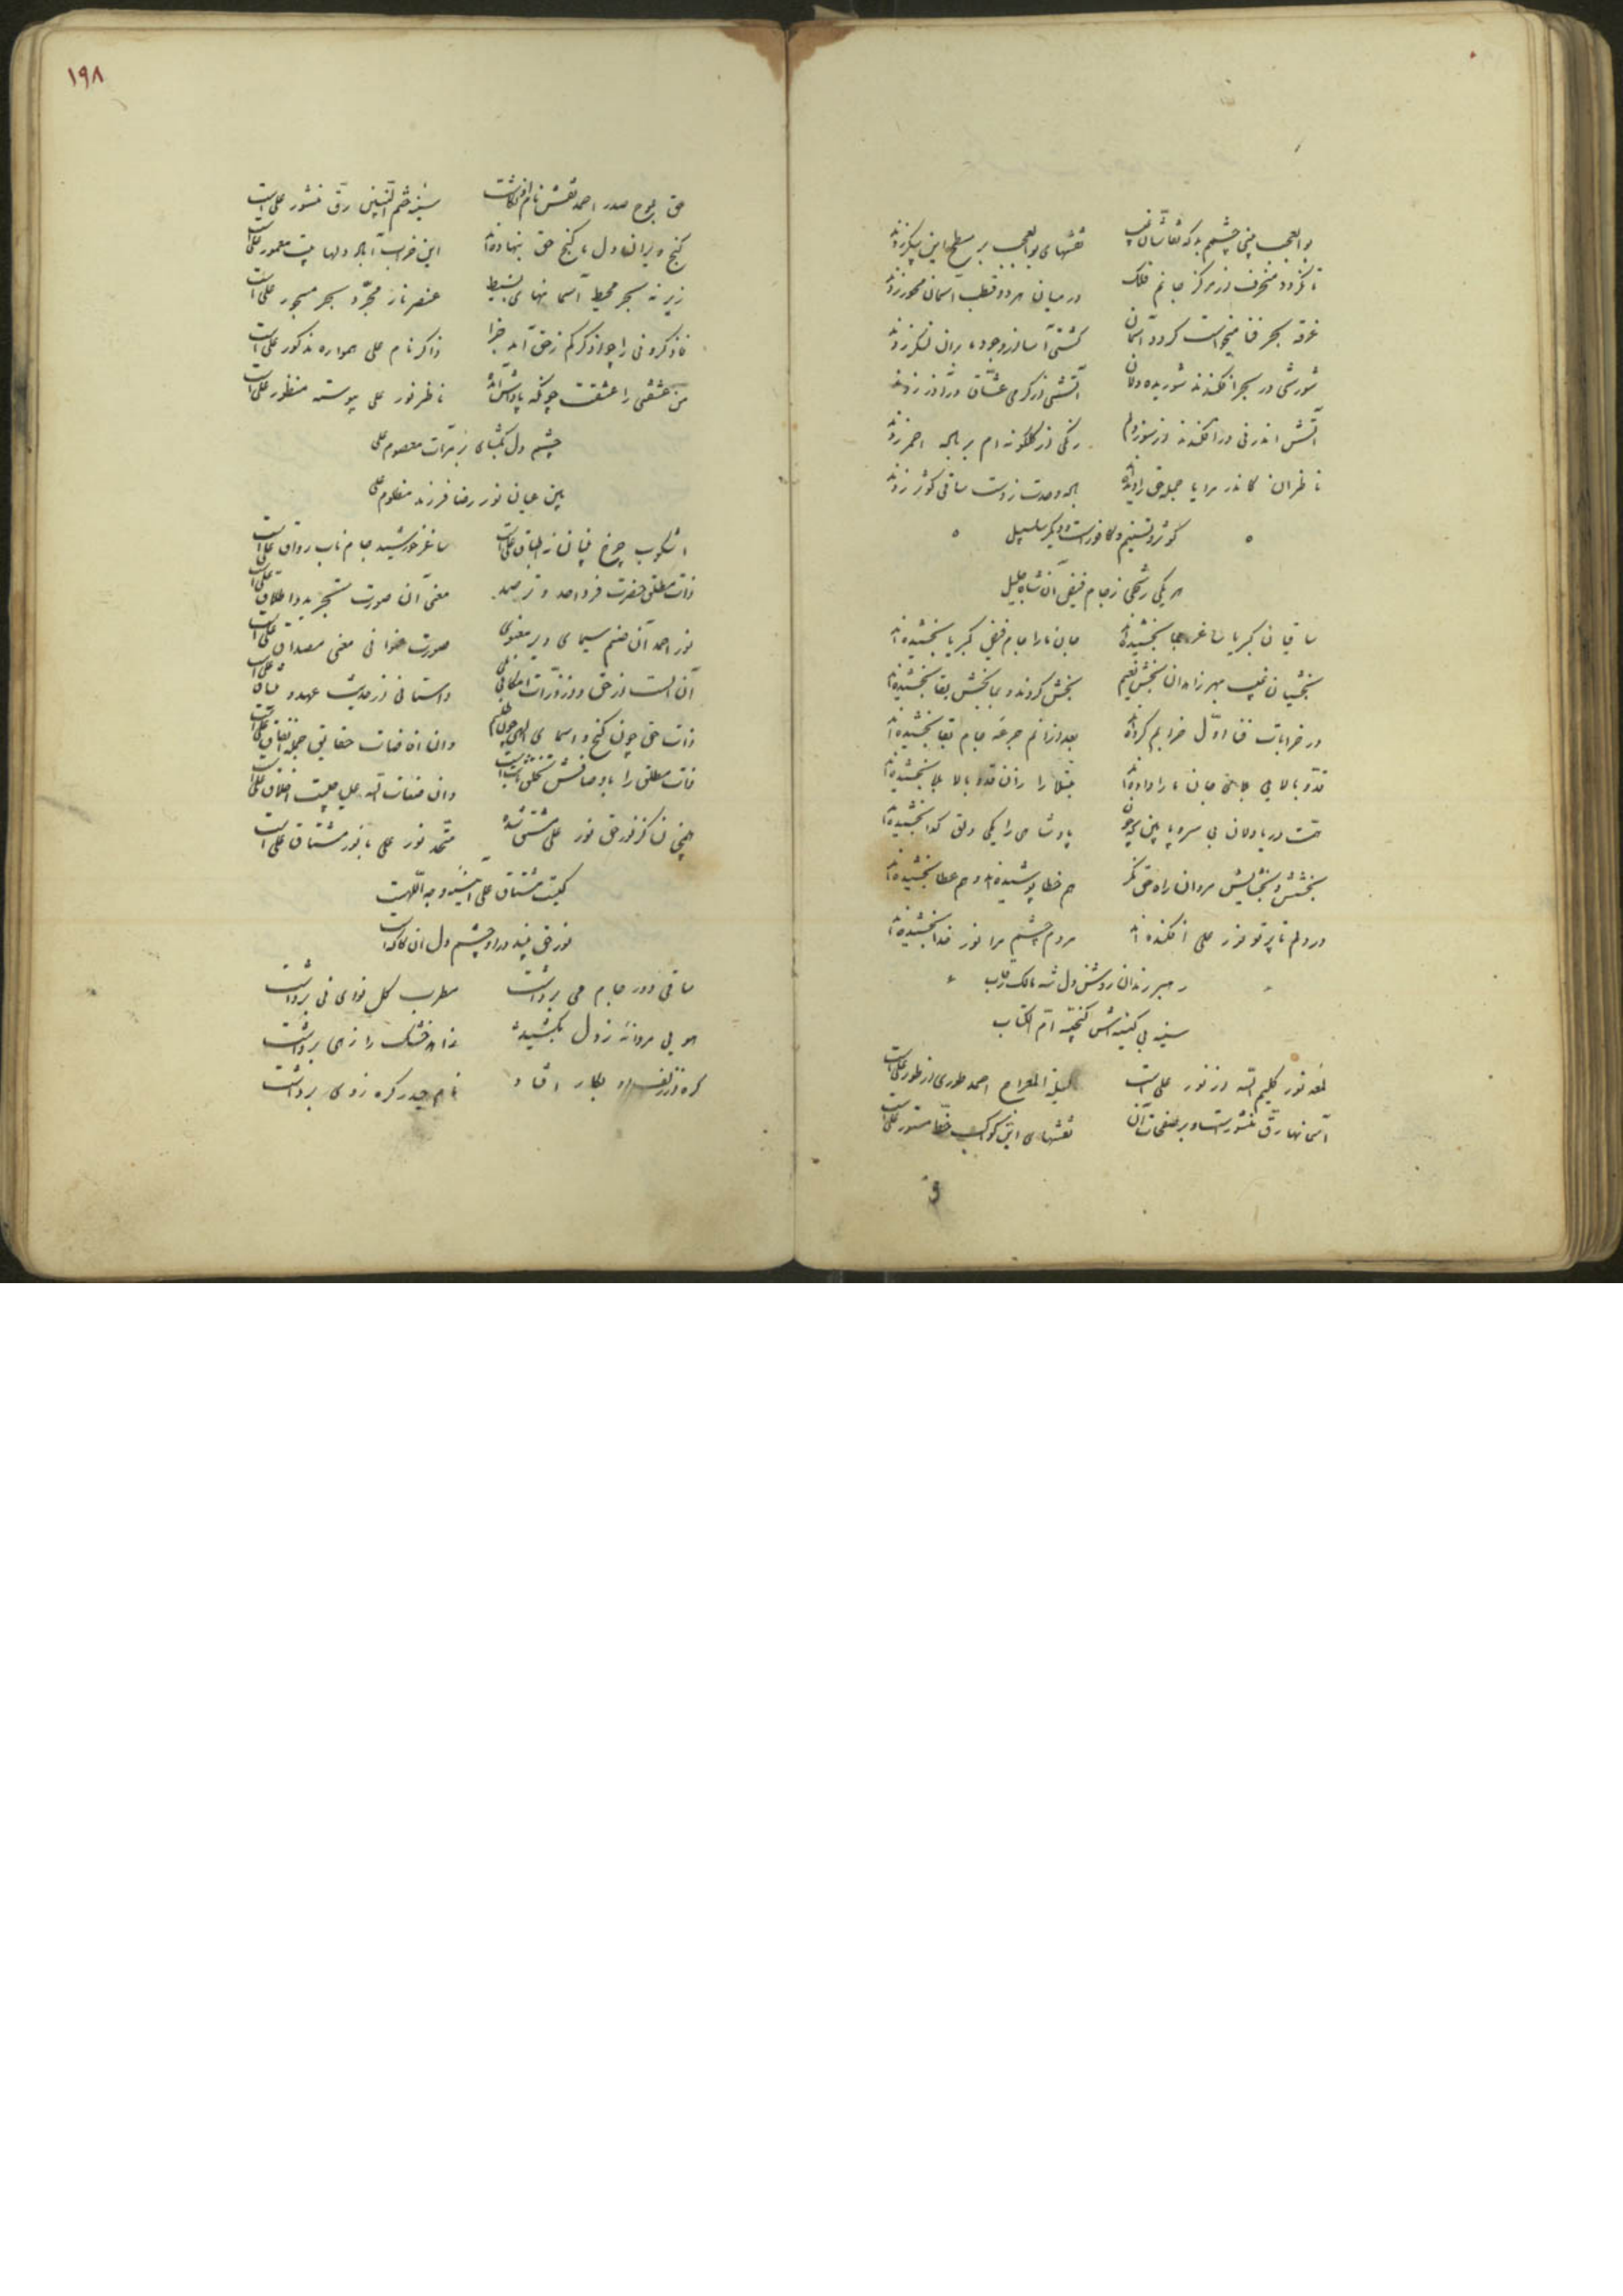 بوالعجب بینی چشمم بد که نقاشان غیب نقشهای بوالعجب بر سطح این پیکر زدند
تا نگردد منحرف از مرکز جانم فلک در میان هر دو قطب آسمان محور زدند
غرقه بحر فنا میخواست گردد آسمان کشتی آسا از وجود ما بران لنگر زدند
شورشی در بحر افکندند شوریده دلان آتشی از گرمی عشاق در آذر زدند
آتش اندر نی درافکندند از سوز دلم رنگی از گلگونه ام بر باده احمر زدند
ناظران کاندر مرایا جمله حق را دیده اند باده وحدت ز دست ساقی کوثر زدند
کوثر و تسنیم و کافور است و دیگر سلسبیل
هر یکی رشحی ز جام فیض آن شاه جلیل
ساقیان کبریا تا ساغر بخشیده اند جان ما را جام فیض کبریا بخشیده اند
بخشیان غیب بهر زاهدان بخش نعیم بخش کردند و بما بخش بقا بخشیده اند
در خرابات فنا اول خرابم کرده اند بعد از آنم جرعه جام بقا بخشیده اند
قد و بالایی بلای جان ما را داده اند مبتلا را زان قد و بالا بلا بخشیده اند
همت دریا دلان بی سر و پا بین که چون پادشاهی را بیکی دلق گدا بخشیده اند
بخشش و بخشایش مردان راه حق نگر هم خطا پوشیده اند و هم عطا بخشیده اند
در دلم تا پرتو نور علی افکنده اند مردم چشم مرا نور خدا بخشیده اند
رهبر رندان روشن دل شه مالک رقاب
سینه بی کینه اش گنجینه ام الکتاب
لمعه نور کلیم الله از نور علی است لیلة المعراج احمد طوری از طور علی است
آسمانها رق منشور است و بر صفحات آن نقشهای این کواکب خط مستور علی است
و
۱۹۸
حق بلوح صدر احمد نقش نام او نگاشت سینه ختم النبیین رق منشور علی است
گنج ویران دل ما گنج حق بنهاده اند این خراب آباد دلها بیت معمور علی است
زیر نه بحر محیط آسمانهای بسیط عنصر نار مجرد بحر مسجور علی است
فاذکرونی را چو اذکرکم ز حق آمد جزا ذاکر نام علی همواره مذکور علی است
من عشقنی را عشقت چونکه پاداش آمده ناظر نور علی پیوسته منظور علی است
چشم دل بگشای بر مرآت معصوم علی
بین عیان نور رضا فرزند مظلوم علی
اسکوب چرخ فینان نه اطباق علی است ساغر خورشید جام ناب رواق علی است
ذات مطلق حضرت فرد احد وتر صمد معنی آن صورت تجرید و اطلاق علی است
نور احمد آن صنم سیمای دیر معنوی صورت عنوانی معنی مصداق علی است
آن الست از حق و از ذرات امکانی بلی داستانی از حدیث عهد و میثاق علی است
ذات حق چون گنج و اسمای الهی چون طلسم وان اضافات حقایق جمله انفاق علی است
ذات مطلق را باوصافش تخلق وان صفات الله علی اخلاق علی است
همچنان کز نور حق نور علی مشتق شده متحد نور علی با نور مشتاق علی است
کیست مشتاق علی آئینه وجه اللهیت
نور حق بیند در او چشم دل آن کاگه است
ساقی دور جام می برداشت مطرب کل نوای نی برداشت
هویی مردانه ز دل بکشید زاهد خشک را ز هی برداشت
گره از زلف او بکار افتاد نام حیدر گره ز وی برداشت